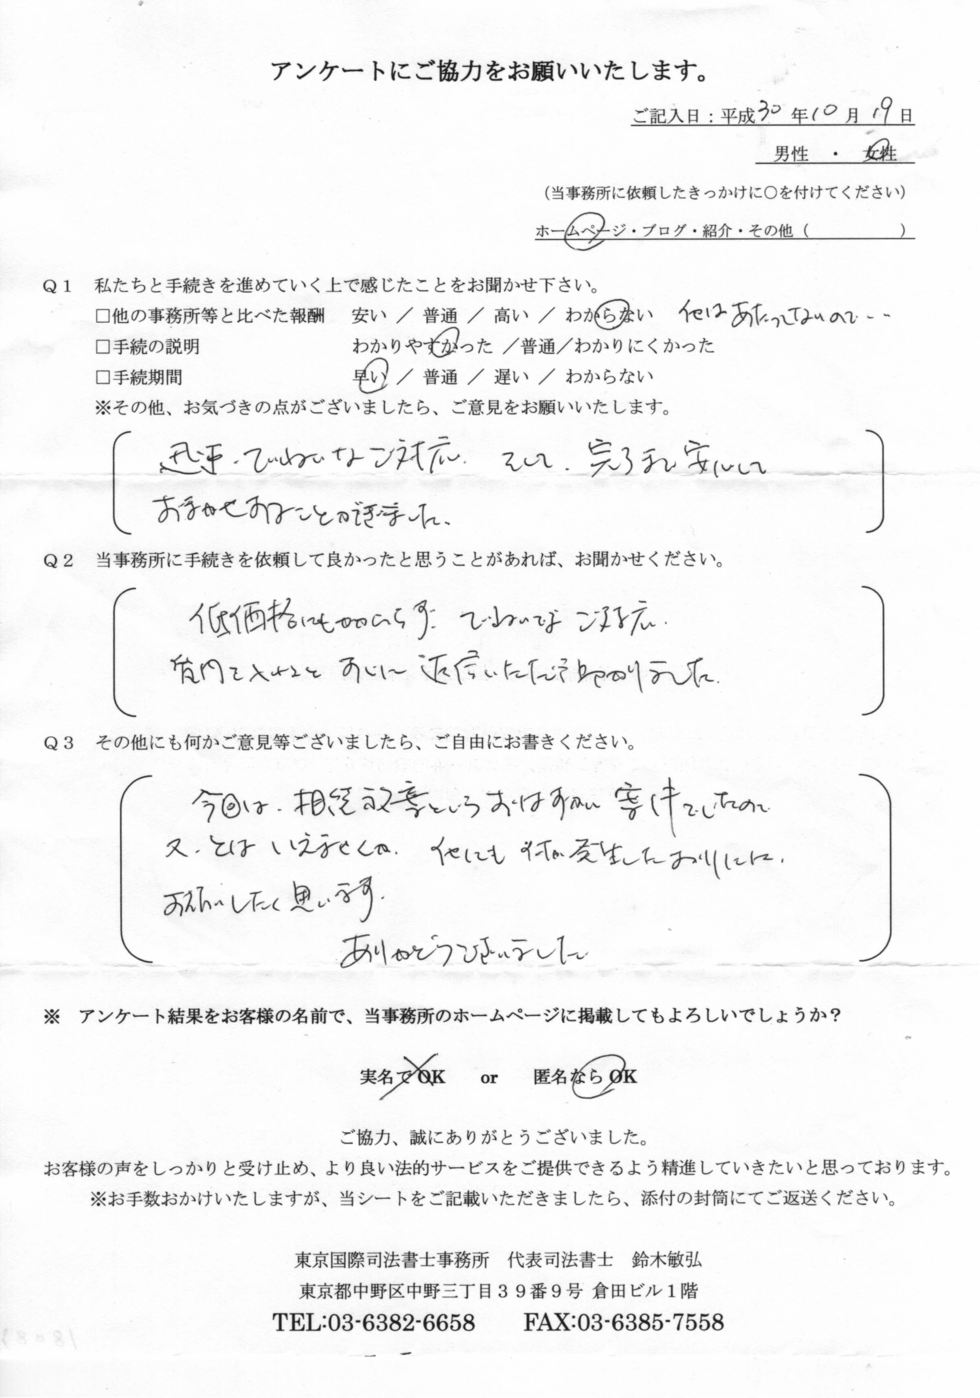 アンケートにご協力をお願いいたします。
ご記入日：平成30年10月19日
男性 ・ 女性
（当事務所に依頼したきっかけに○を付けてください）
ホームページ・ブログ・紹介・その他（　　　　　）
Ｑ１　私たちと手続きを進めていく上で感じたことをお聞かせ下さい。
□他の事務所等と比べた報酬　安い ／ 普通 ／ 高い ／ わからない　他はあたってないので・・
□手続の説明　わかりやすかった ／普通／わかりにくかった
□手続期間　早い ／ 普通 ／ 遅い ／ わからない
※その他、お気づきの点がございましたら、ご意見をお願いいたします。
迅速、ていねいなご対応、そして、完了まで安心して
おまかせすることができました、
Ｑ２　当事務所に手続きを依頼して良かったと思うことがあれば、お聞かせください。
低価格にもかかわらず、ていねいなご対応、
質問をすると すぐに 返信いただき助かりました。
Ｑ３　その他にも何かご意見等ございましたら、ご自由にお書きください。
今回は、相続放棄という 案件でしたので
又、とは いえませんが、他にも 何か発生したおりには、
お願いしたく思います。
ありがとうございました
※　アンケート結果をお客様の名前で、当事務所のホームページに掲載してもよろしいでしょうか？
実名でOK　or　匿名ならOK
ご協力、誠にありがとうございました。
お客様の声をしっかりと受け止め、より良い法的サービスをご提供できるよう精進していきたいと思っております。
※お手数おかけいたしますが、当シートをご記載いただきましたら、添付の封筒にてご返送ください。
東京国際司法書士事務所　代表司法書士　鈴木敏弘
東京都中野区中野三丁目３９番９号 倉田ビル１階
TEL:03-6382-6658　FAX:03-6385-7558